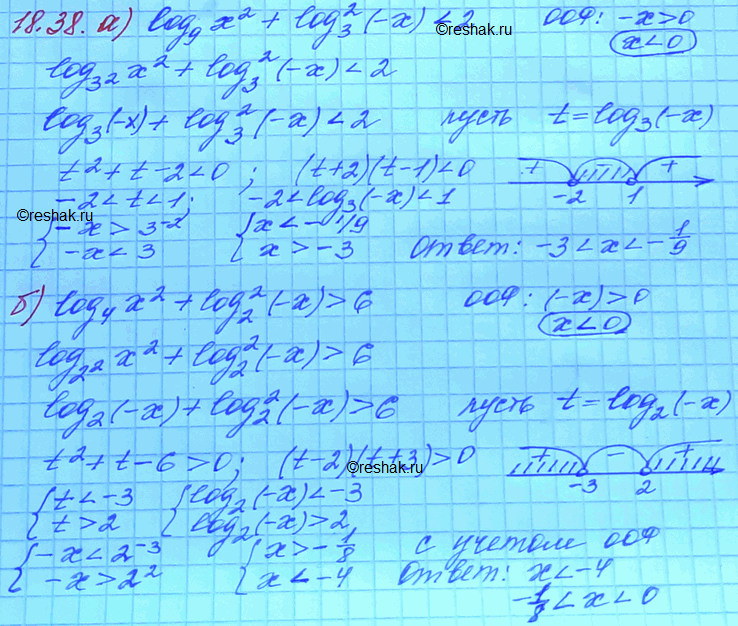 18.38. а) log₉ x² + log₃² (-x) < 2 ООФ: -x > 0
©reshak.ru
x < 0
log₃₂ x² + log₃² (-x) < 2
log₃(-x) + log₃² (-x) < 2 пусть t = log₃(-x)
t² + t - 2 < 0 ; (t+2)(t-1) < 0 + - +
-2 < t < 1; -2 < log₃(-x) < 1 -2 1
©reshak.ru
{ -x > 3⁻² { x < -1/9
{ -x < 3 { x > -3 Ответ: -3 < x < -1/9
б) log₄ x² + log₂² (-x) > 6 ООФ: (-x) > 0
x < 0
log₂² x² + log₂² (-x) > 6
log₂(-x) + log₂² (-x) > 6 пусть t = log₂(-x)
t² + t - 6 > 0; (t-2)(t+3) > 0 + - +
©reshak.ru
-3 2
{ t < -3 { log₂(-x) < -3
{ t > 2 { log₂(-x) > 2
{ -x < 2⁻³ { x > -1/8 с учетом ООФ
{ -x > 2² { x < -4 Ответ: x < -4
-1/8 < x < 0